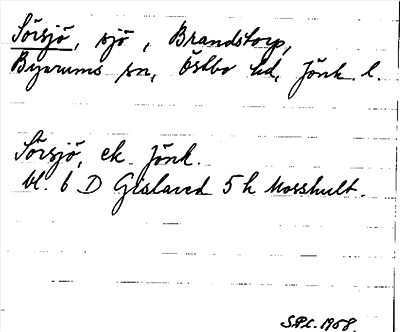 Sörsjö, sjö, Brandstorp,
Byarums sn, Östbo hd, Jönk l.
Sörsjö, ek. Jönk.
bl. 6 D Gislaved 5 h Mosshult.
S.P.L. 1958.